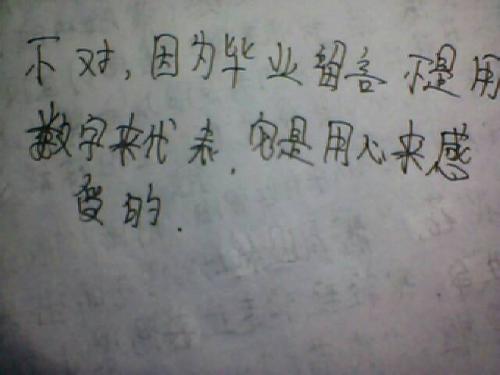 不对,因为毕业留言不是用
数字来代表,它是用心来感
受的.